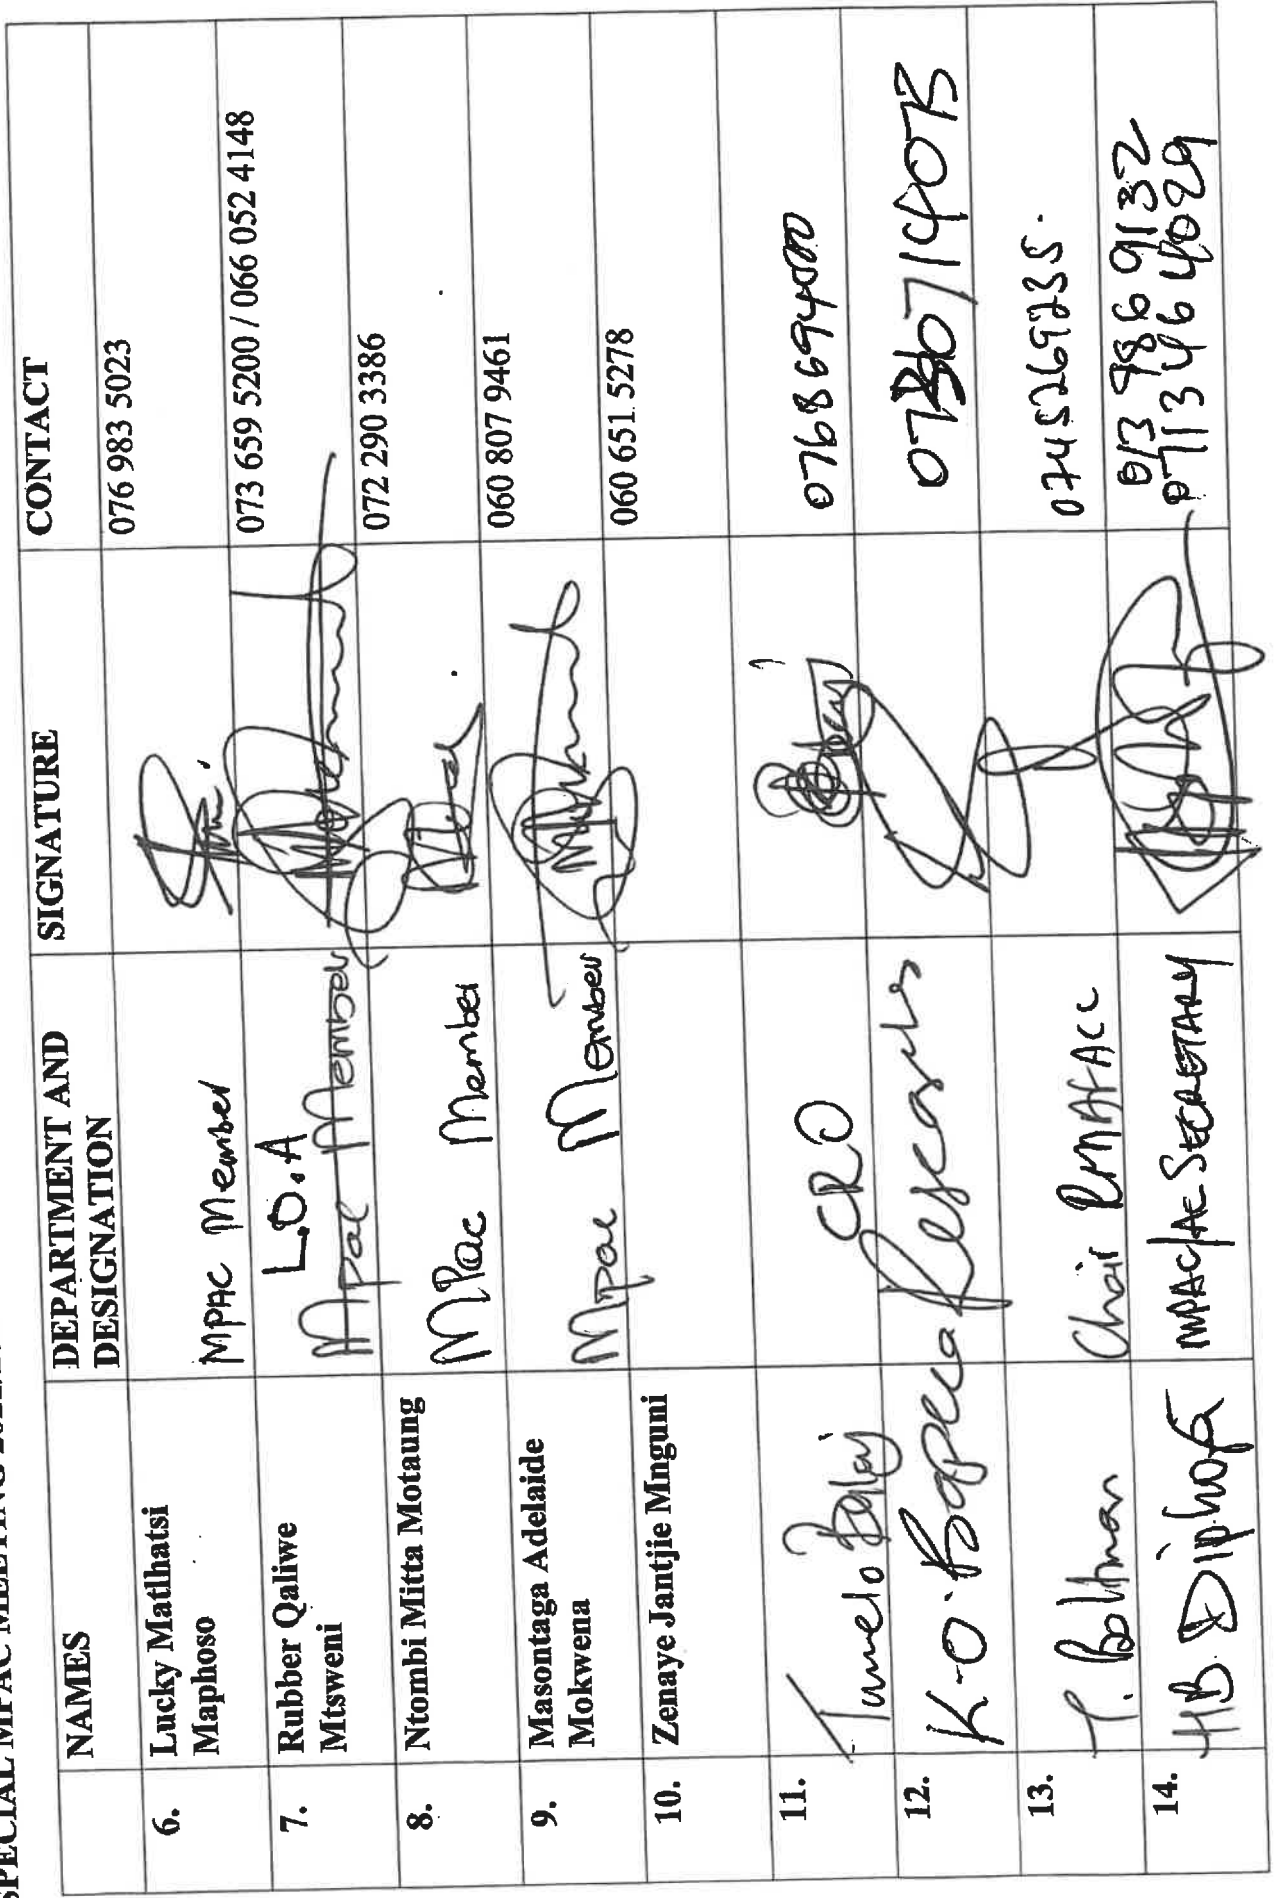 SPECIAL MPAC MEETING
NAMES
DEPARTMENT AND
DESIGNATION
SIGNATURE
CONTACT
6.
Lucky Matlhatsi
Maphoso
MPAC Member
076 983 5023
7.
Rubber Qaliwe
Mtsweni
L.O.A
Mpac Member
073 659 5200 / 066 052 4148
8.
Ntombi Mitta Motaung
MPac Member
072 290 3386
9.
Masontaga Adelaide
Mokwena
Mpac Member
060 807 9461
10.
Zenaye Jantjie Mnguni
060 651 5278
11.
Tumelo
CRO
12.
K.O. Bapela
Researcher
13.
T. Boltman
Chair
0745269235.
14.
HB Diphofa
MPAC/AC SECRETARY
013 986 9132
0713464029